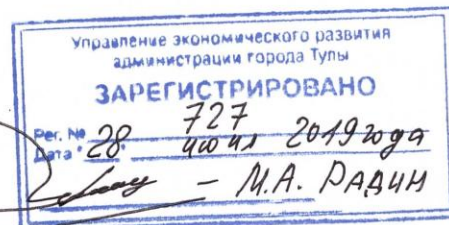 Управление экономического развития
администрации города Тулы
ЗАРЕГИСТРИРОВАНО
Рег. № 727
Дата "28" 2019 года
- М.А. РАДИН